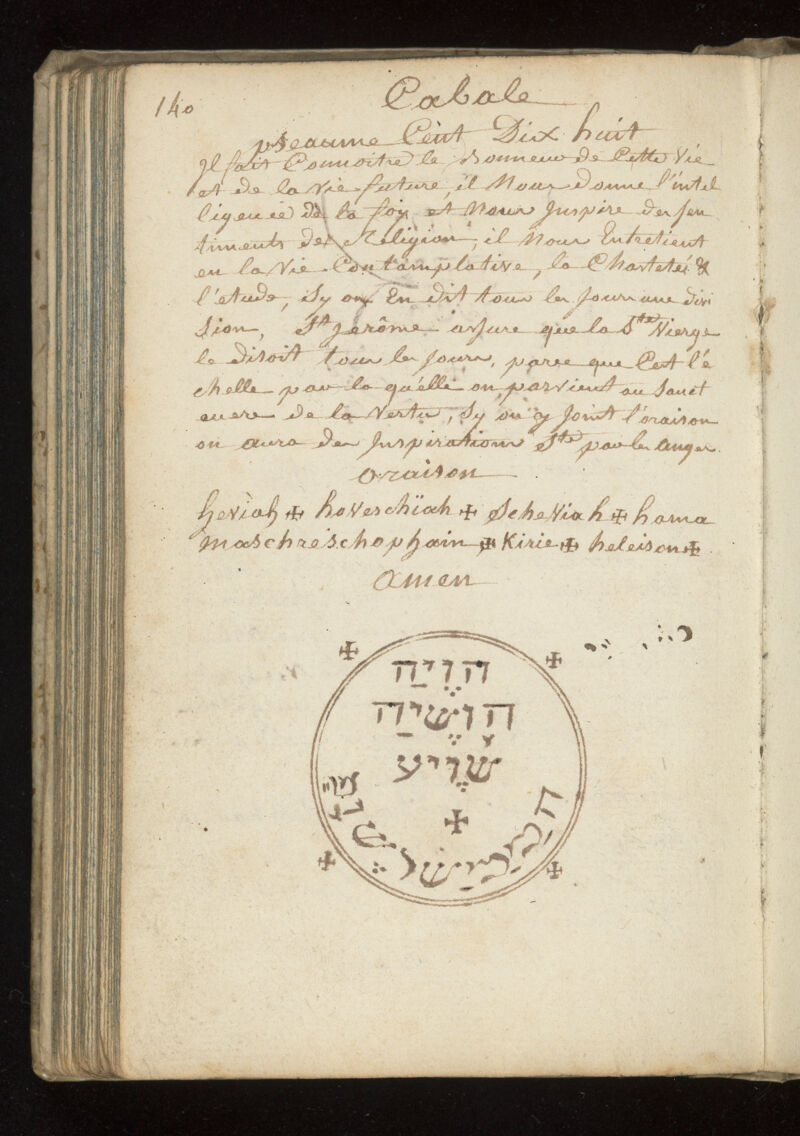 140
Cabale
pseaume Cent Dix huit
Il fait Connoitre le Bonneur de Cette Vie
et de la vie future, il Nous donne l'intel
ligence de la foy et Nous Juspire des sen
timents de Religion, il Nous Entretient
en la Vie Contamplative, la Chasteté &
l'etude, sy on En dit tous les Jours une divi
sion, St Jerôme assure que la Ste Vierge
le disoit tous les Jours, parse que C'est l'é
chelle par la quélle on parvient au Sanct
euere de la Vertu, Sy on y Joint l'oraison
on aura des Juspirations Ste par les anges.
oraison
heviah ✠ hoveschïah ✠ Scheviah ✠ hama
maschreschophain ✠ Kirie ✠ heleison ✠
Amen
הוֶיַה
הָושֶׁיַה
שָׁוֶיע